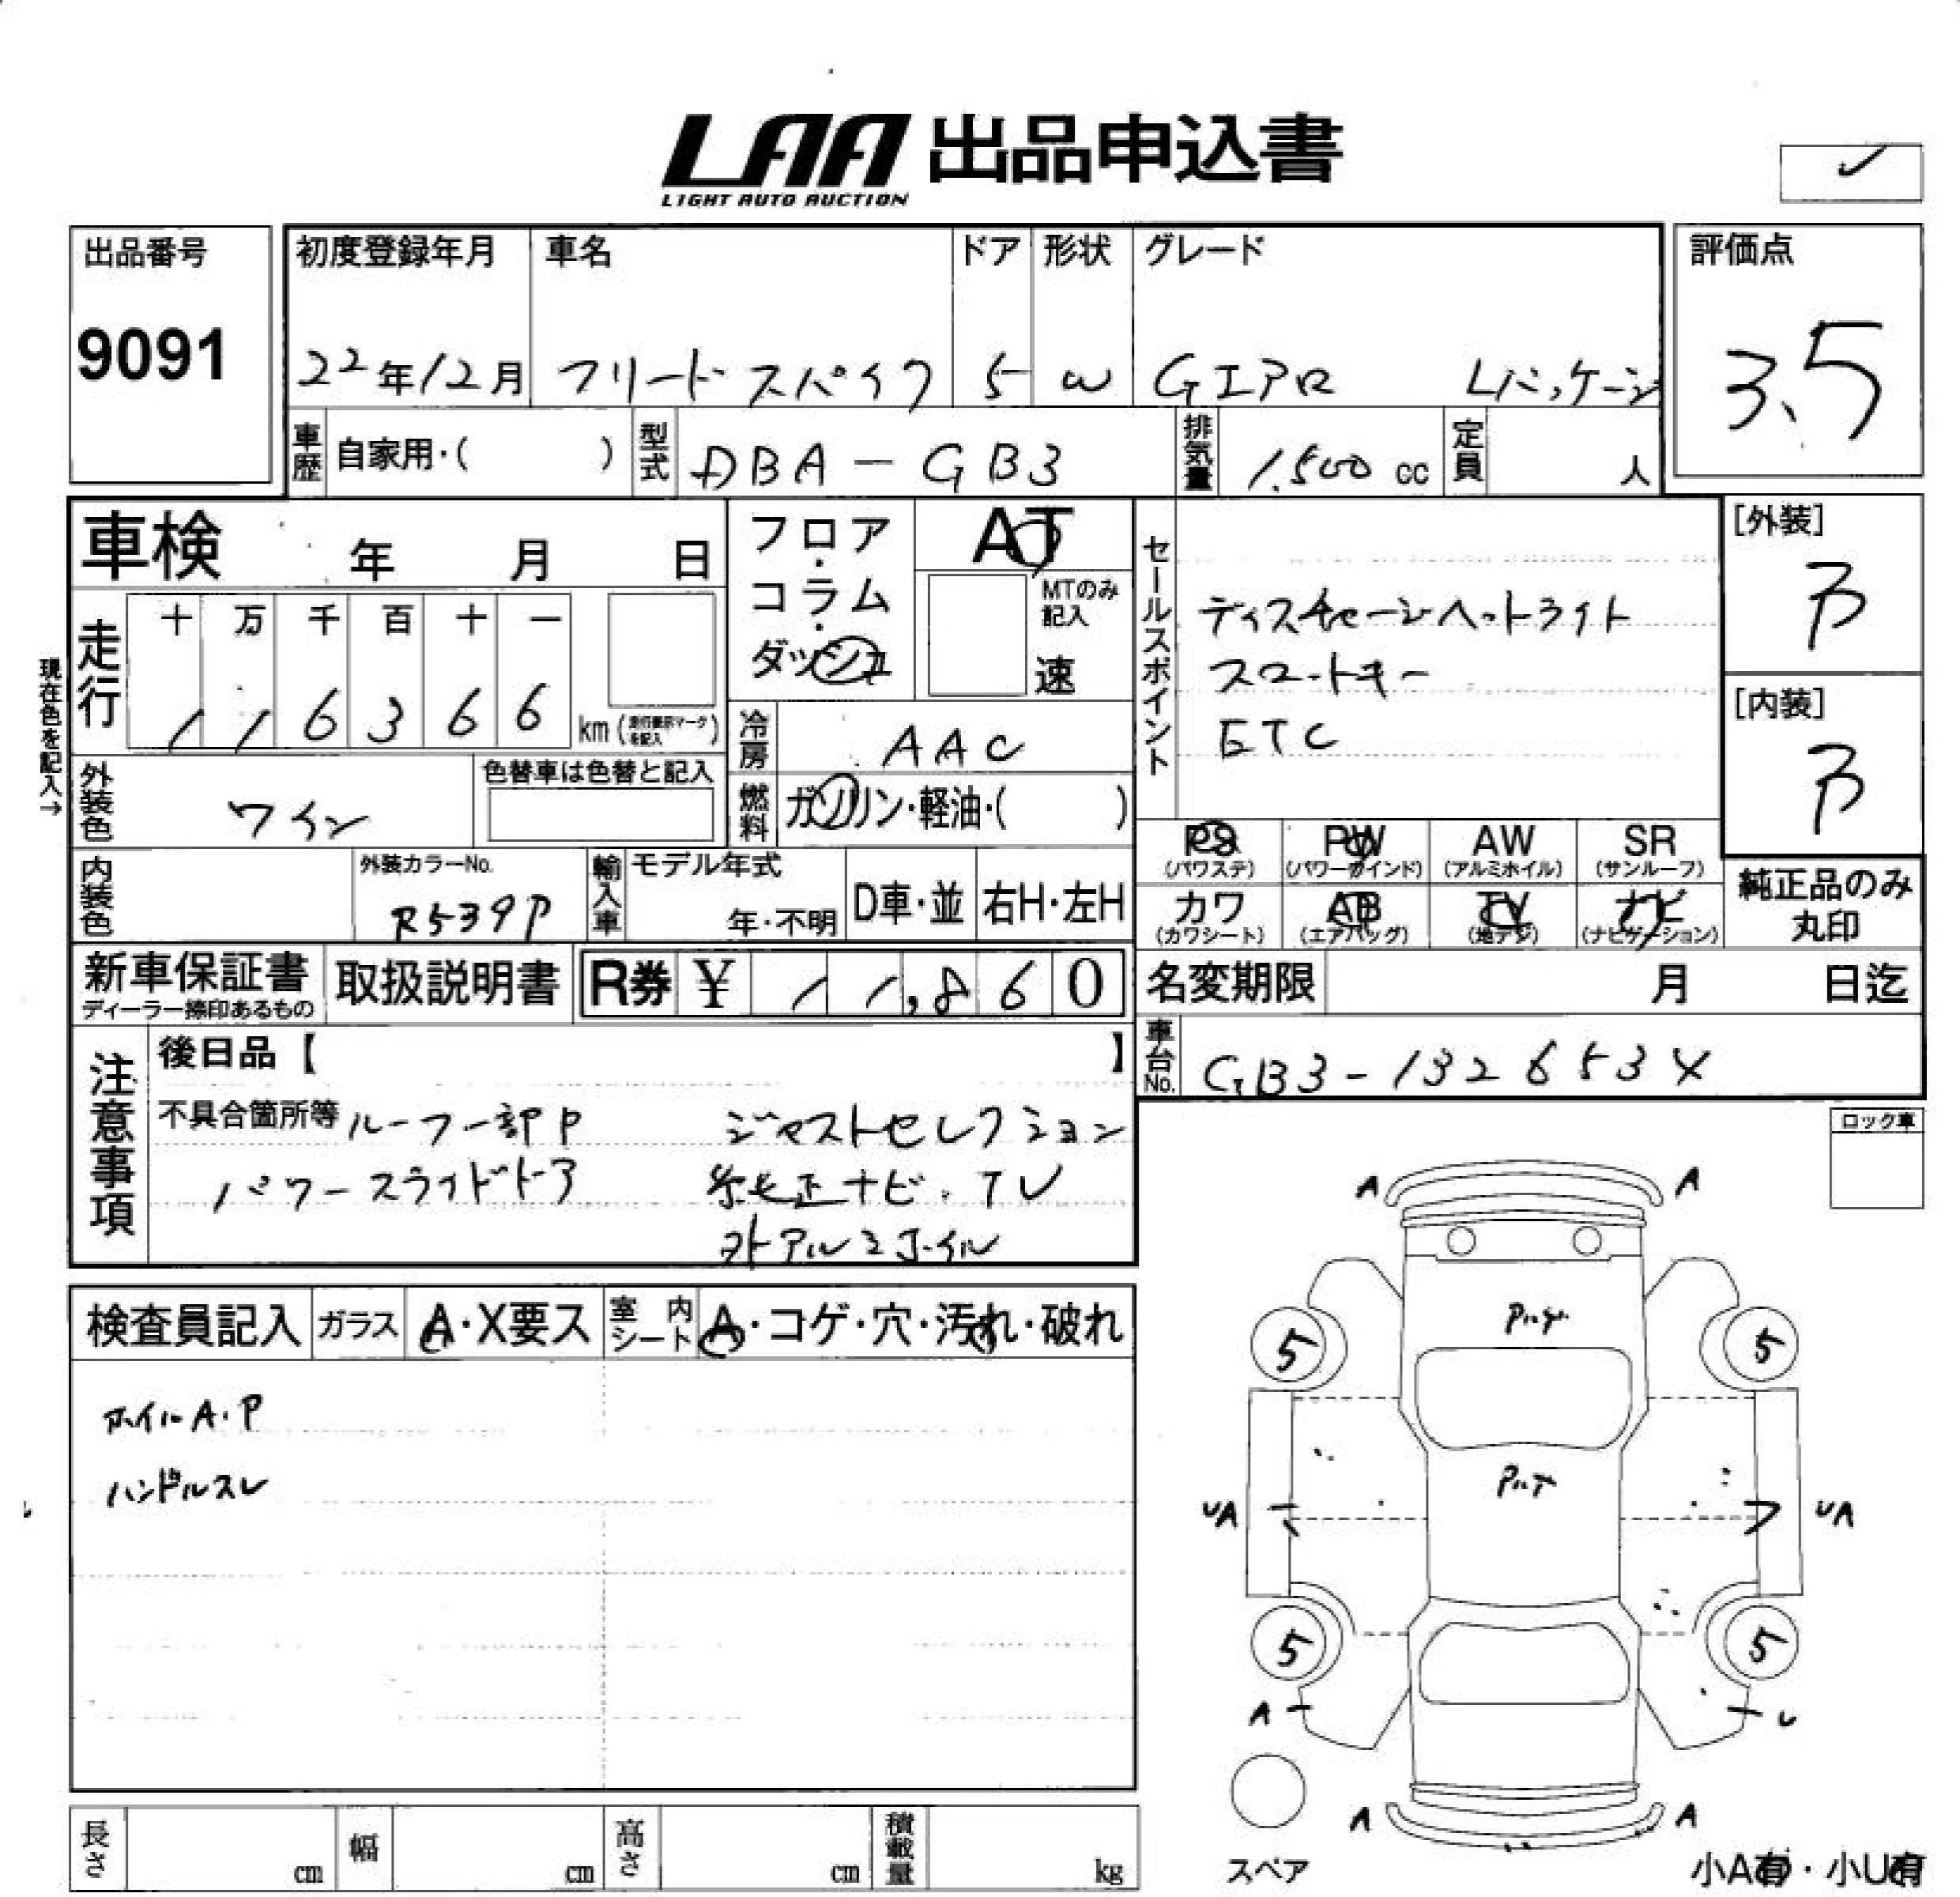 LAA 出品申込書
LIGHT AUTO AUCTION
出品番号
9091
初度登録年月
22年12月
車名
フリードスパイク
ドア
5
形状
W
グレード
Gエアロ Lパッケージ
評価点
3.5
車歴 自家用・( )
型式 DBA-GB3
排気量 1,500 cc
定員 人
車検 年 月 日
フロア・コラム・ダッシュ
AT
MTのみ記入
速
走行
十 万 千 百 十 一
1 1 6 3 6 6
km (走行表示マークを記入)
現在色を記入→
冷房 AAC
外装色 ワイン
色替車は色替と記入
燃料 ガソリン・軽油・( )
内装色
外装カラーNo.
R539P
輸入車 モデル年式
年・不明
D車・並 右H・左H
セールスポイント
ディスチャージヘットライト
スマートキー
ETC
[外装]
B
[内装]
B
PS (パワステ)
PW (パワーウインド)
AW (アルミホイル)
SR (サンルーフ)
カワ (カワシート)
AB (エアバッグ)
TV (地デジ)
ナビ (ナビゲーション)
純正品のみ
丸印
新車保証書
ディーラー捺印あるもの
取扱説明書
R券 ¥ 11,860
名変期限 月 日迄
車台No. GB3-1326534
注意事項
後日品【 】
不具合箇所等 ルーフ一部P ジャストセレクション
パワースライドドア 純正ナビ.TV
外アルミホイル
ロック車
検査員記入
ガラス A・X要ス
室内シート A・コゲ・穴・汚れ・破れ
ホイルA.P
ハンドルスレ
A A
5 5
UA UA
5 5
A U
A A
スペア
小A有・小U有
長さ cm
幅 cm
高さ cm
積載量 kg